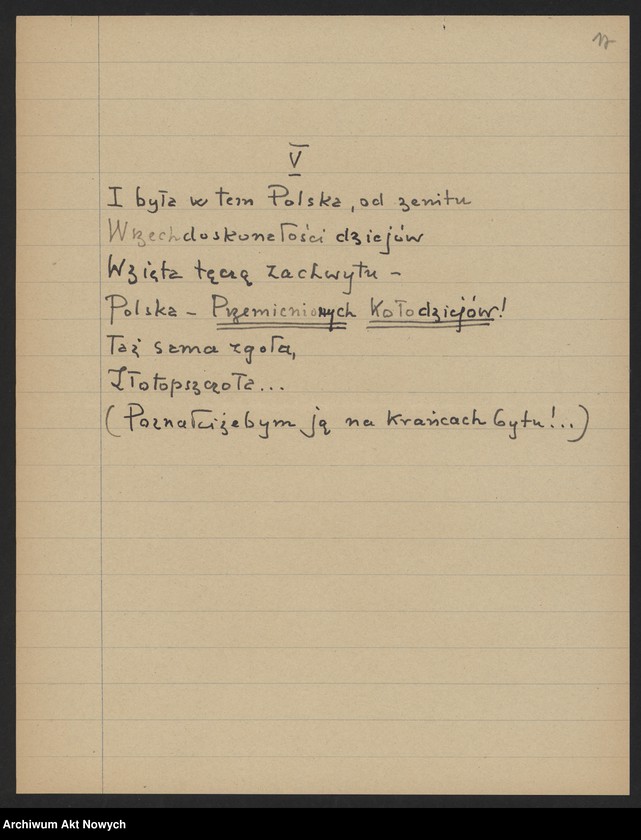 17
V
I była w tem Polska, od zenitu
Wszechdoskonałości dziejów
Wzięta tęczą zachwytu –
Polska – Przemienionych Kołodziejów!
Taż sama zgoła,
Złotopszczoła...
(Poznałciżebym ją na krańcach bytu!..)
Archiwum Akt Nowych